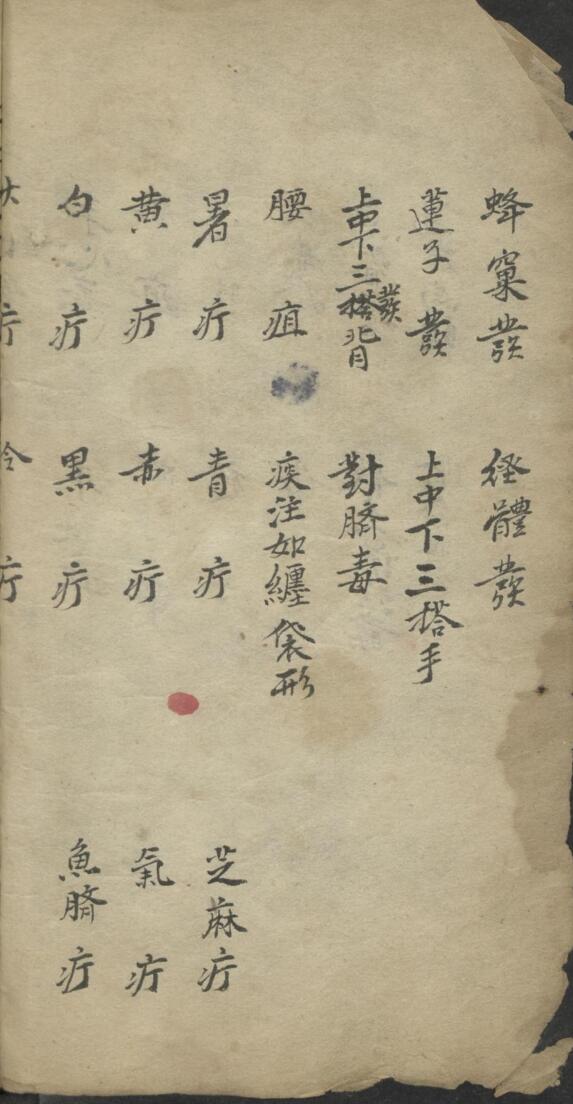 蜂窠發　經體發
蓮子發　上中下三搭手
上中下三搭發背　對臍毒
腰疽　痰注如纏袋形
暑疔　青疔　芝麻疔
黄疔　赤疔　氣疔
白疔　黑疔　魚臍疔
疔　冷疔